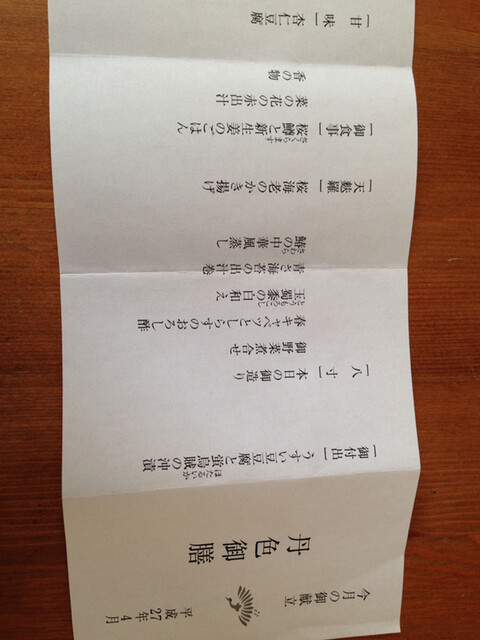 今月の御献立
平成27年4月
丹色御膳
一 御付出 一
うすい豆豆腐と蛍烏賊の沖漬
ほたるいか
一 八寸 一
本日の御造り
御野菜煮合せ
春キャベツとしらすのおろし酢
玉蜀黍の白和え
とうもろこし
青さ海苔の出汁巻
鰆の中華風蒸し
さわら
一 天麩羅 一
桜海老のかき揚げ
一 御食事 一
桜鱒と新生姜ごはん
さくらます
菜の花の赤出汁
香の物
一 甘味 一
杏仁豆腐